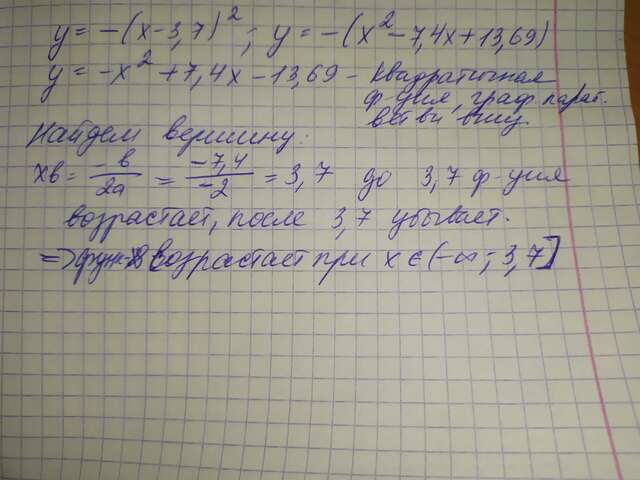 y = -(x-3,7)²; y = -(x²-7,4x+13,69)
y = -x²+7,4x-13,69 - квадратичная
ф-ция, граф. параб.
ветви вниз.
Найдем вершину:
xв = -b/2a = -7,4/-2 = 3,7 до 3,7 ф-ция
возрастает, после 3,7 убывает.
=> возрастает при x ∈ (-∞; 3,7]